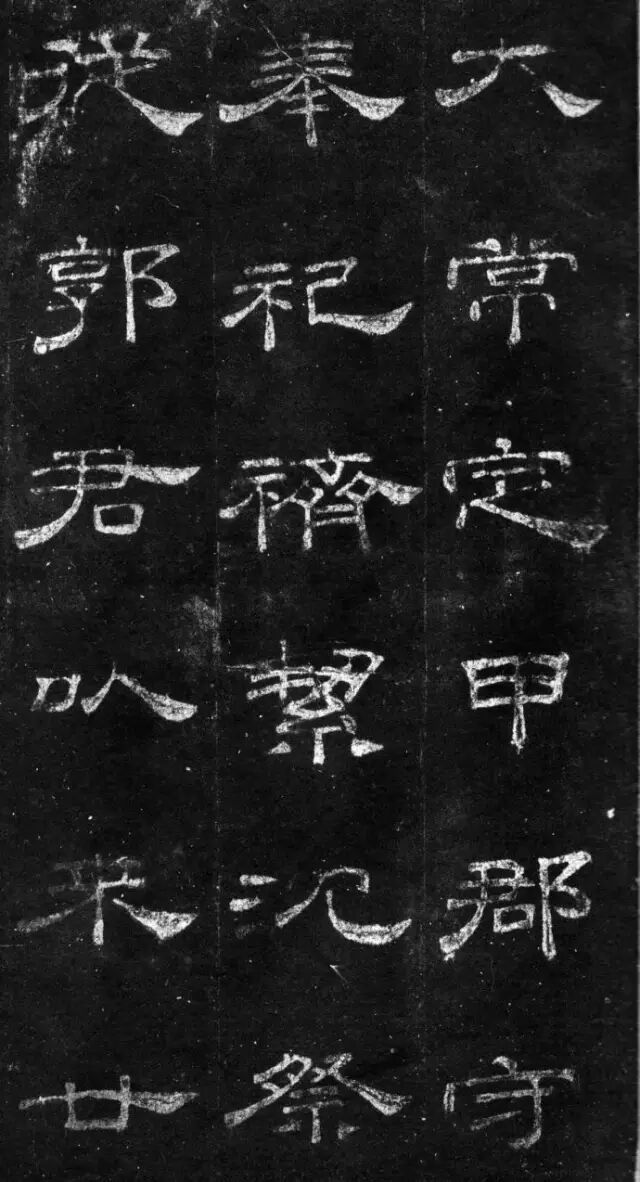 大常定甲郡守
奉祀禱絜沉祭
從郭君以來廿